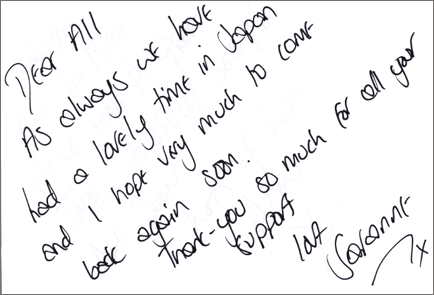 Dear All
As always we have
had a lovely time in Japan
and I hope very much to come
back again soon!
Thank-you so much for all your
support
luv
Saranne
x